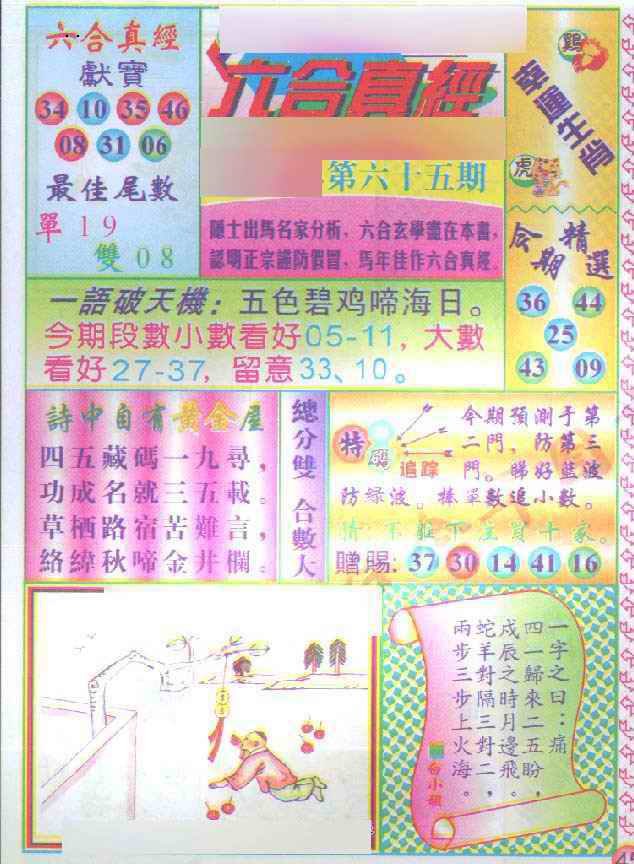 六合真經
獻寶
34 10 35 46
08 31 06
最佳尾數
單 19
雙 08
六合真經
第六十五期
隱士出馬名家分析，六合玄學盡在本書，
認明正宗謹防假冒，馬年佳作六合真經。
雞
幸運生肖
虎
今期精選
36 44
25
43 09
一語破天機：五色碧鸡啼海日。
今期段數小數看好05-11，大數
看好27-37，留意33、10。
詩中自有黃金屋
四五藏碼一九尋，
功成名就三五載。
草栖路宿苦難言，
絡緯秋啼金井欄。
總分雙 合數大
特
追踪
今期預測于第
二門，防第三
門。睇好藍波
防绿波。捧單數追小數。
贈賜：37 30 14 41 16
一字之曰：痛
四一歸來二五盼，
戍辰之時月邊飛。
蛇羊對隔三對二，
兩步三步上火海。